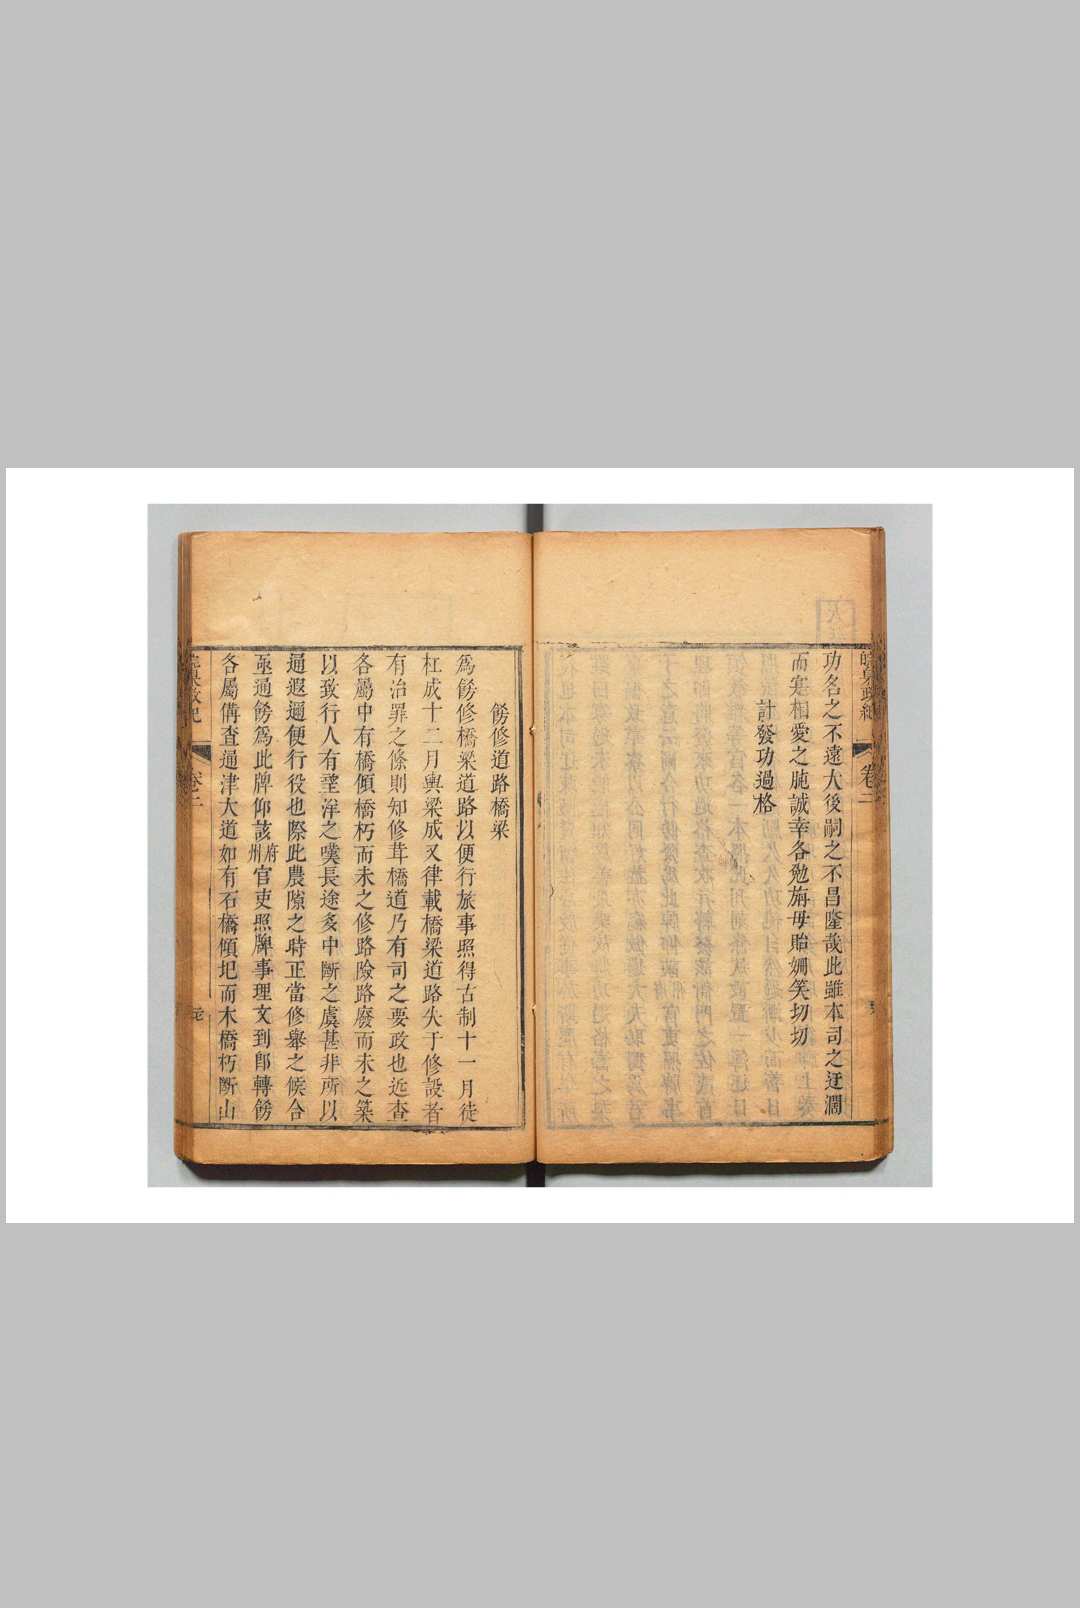 功名之不遠大後嗣之不昌隆哉此雖本司之迂濶
而寔相愛之肫誠幸各勉旃毋貽姍笑切切
計發功過格
卷二
飭修道路橋梁
爲飭修橋梁道路以便行旅事照得古制十一月徒
杠成十二月輿梁成又律載橋梁道路失于修設者
有治罪之條則知修葺橋道乃有司之要政也近查
各屬中有橋傾橋朽而未之修路險路廢而未之築
以致行人有望洋之嘆長途多中斷之虞甚非所以
通遐邇便行役也際此農隙之時正當修舉之候合
亟通飭爲此牌仰該府州官吏照牌事理文到卽轉飭
各屬備查通津大道如有石橋傾圯而木橋朽斷山
卷二